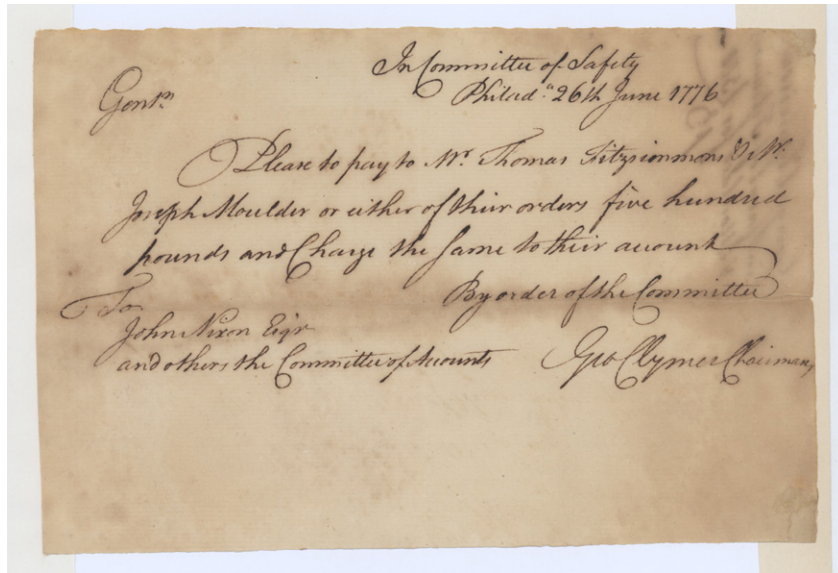 In Committee of Safety
Philad.ª 26th June 1776
Gentn
Please to pay to Mr. Thomas Fitzsimmons & Mr.
Joseph Moulder or either of their orders five hundred
pounds and Charge the same to their account
By order of the Committee
To
John Nixon Esqr
and others the Committee of Accounts
Geo Clymer Chairman